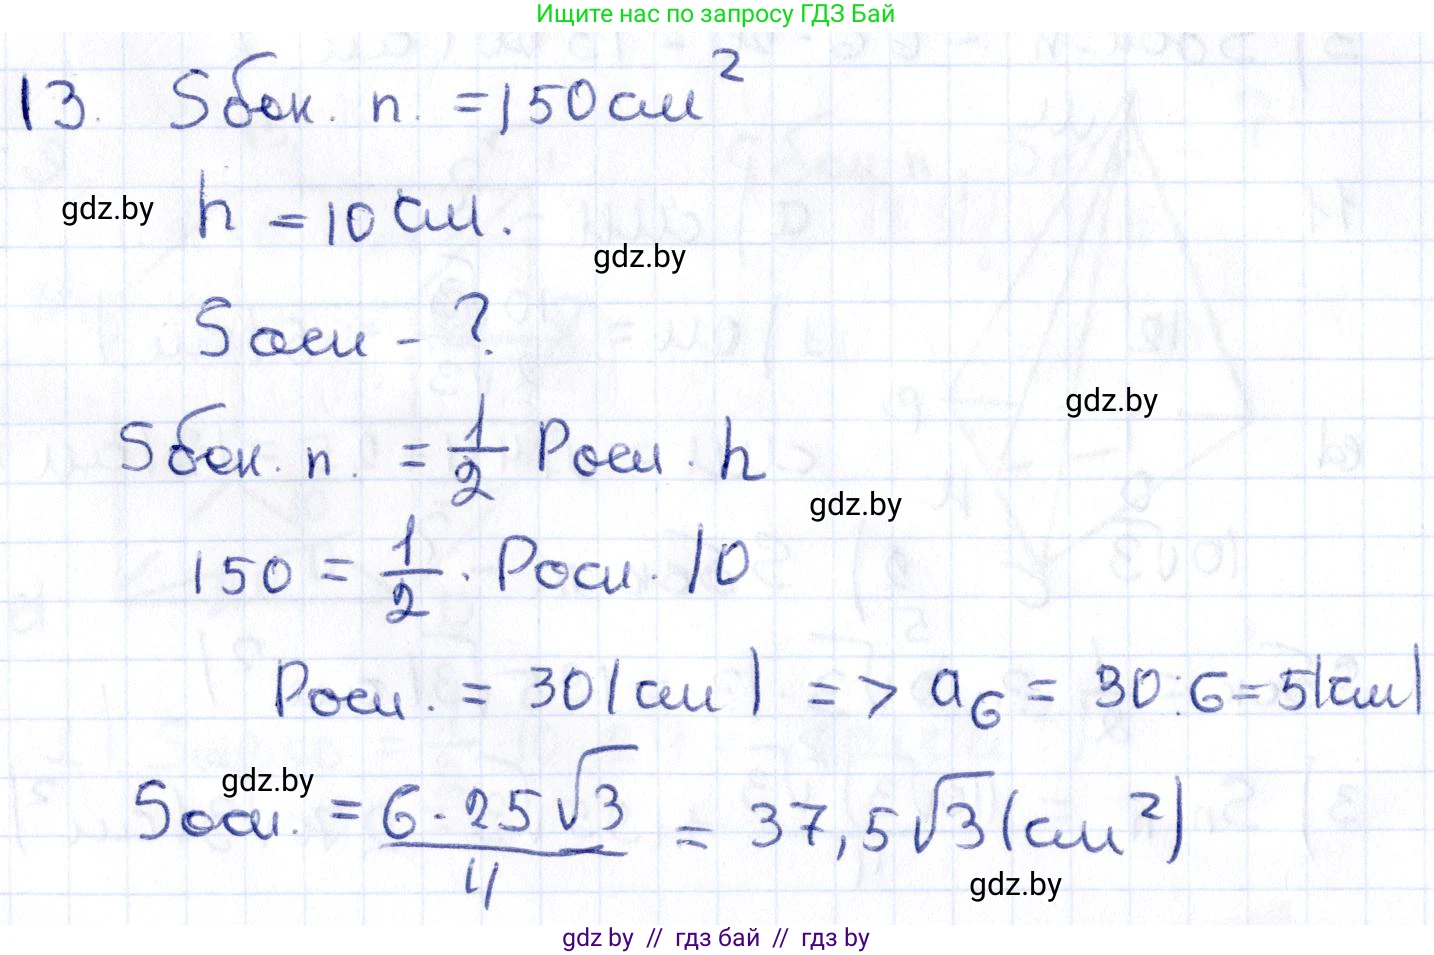 Ищите нас по запросу ГДЗ Бай
13. Sбок. п. = 150 см²
gdz.by h = 10 см.
gdz.by
Sосн - ?
gdz.by
Sбок. п. = 1/2 Pосн. h
gdz.by
150 = 1/2 · Pосн. 10
Pосн. = 30 (см) => a₆ = 30:6 = 5 (см)
gdz.by
Sосн. = 6·25√3/4 = 37,5√3 (см²)
gdz.by
gdz by // гдз бай // гдз by